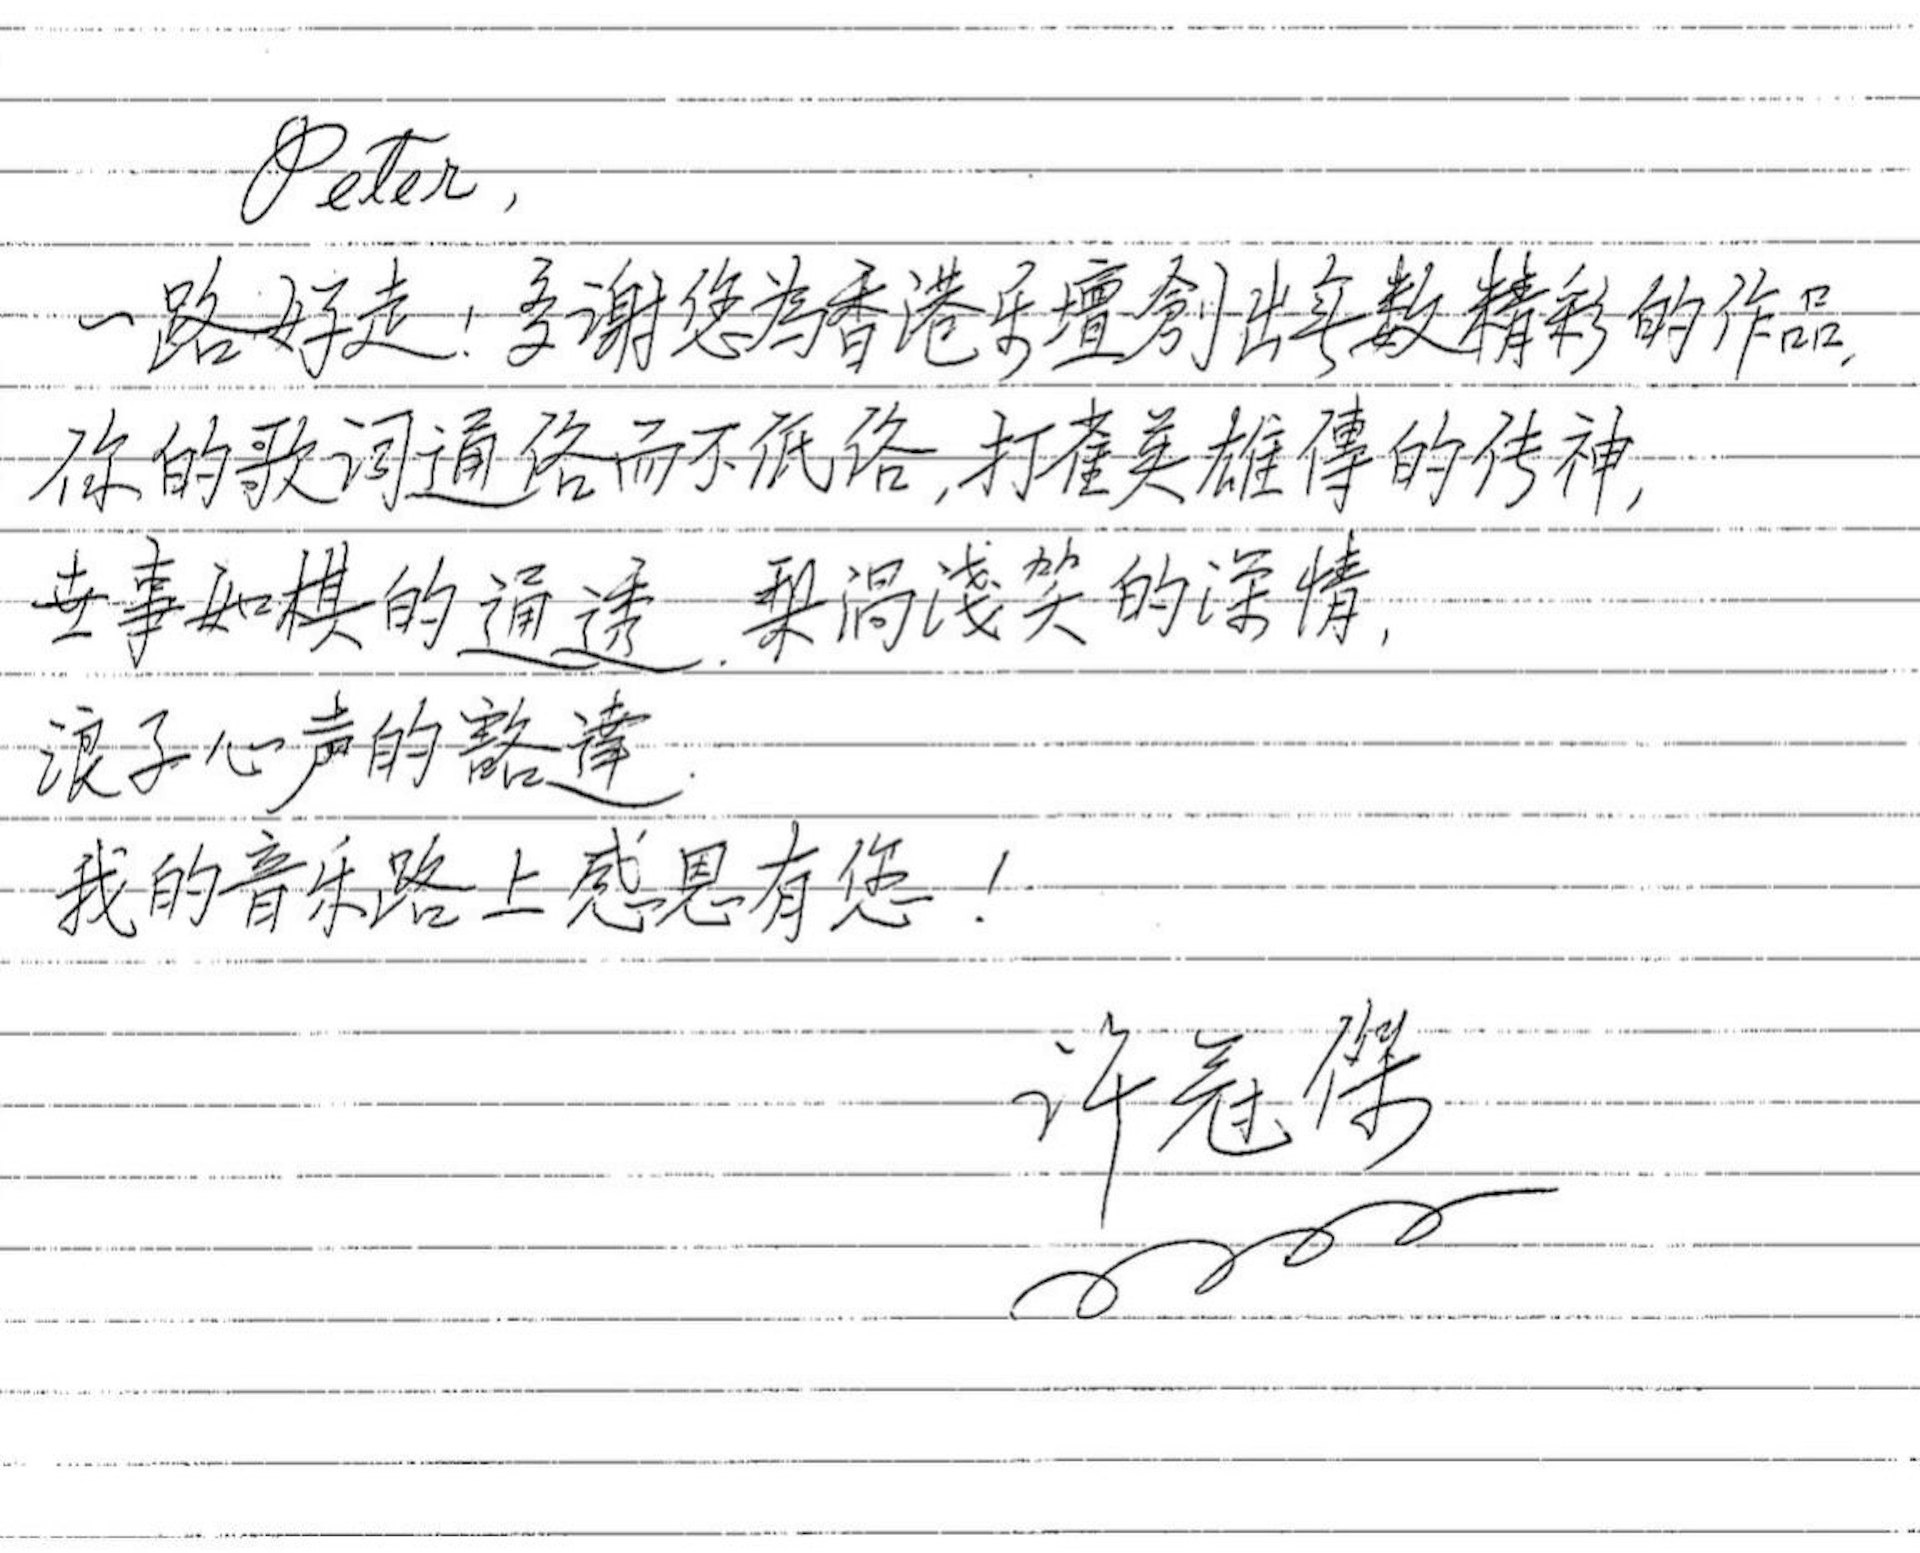 Peter,
一路好走！多谢您為香港乐壇創出无数精彩的作品.
你的歌词通俗而不低俗,打雀英雄傳的传神,
世事如棋的通透.梨渦淺笑的深情,
浪子心声的豁達.
我的音乐路上感恩有您！
许冠傑